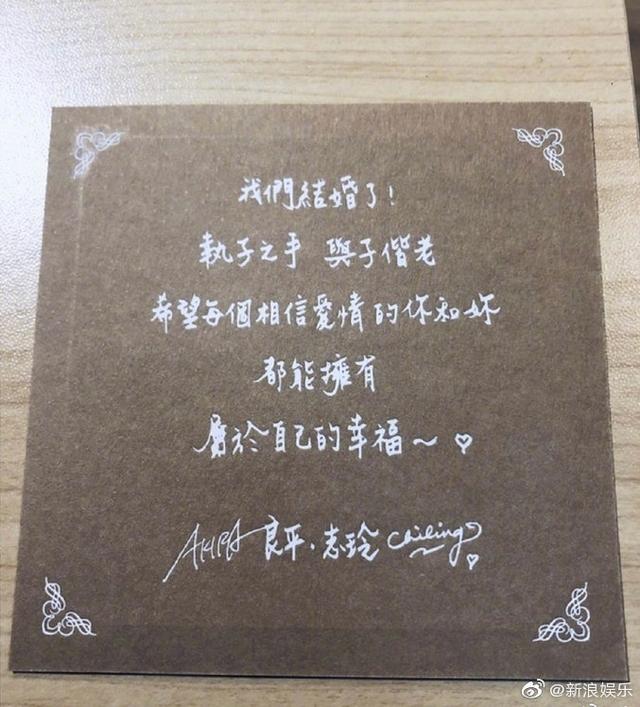 我們結婚了!
執子之手 與子偕老
希望每個相信愛情的你和妳
都能擁有
屬於自己的幸福~♡
AKIRA 良平、志玲 Chiling♡
@新浪娱乐